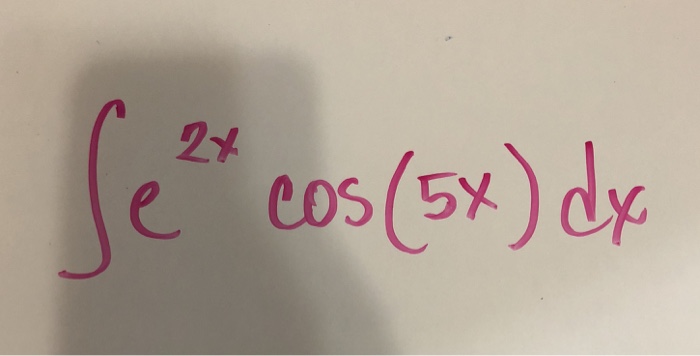 ∫e^{2x} cos(5x) dx